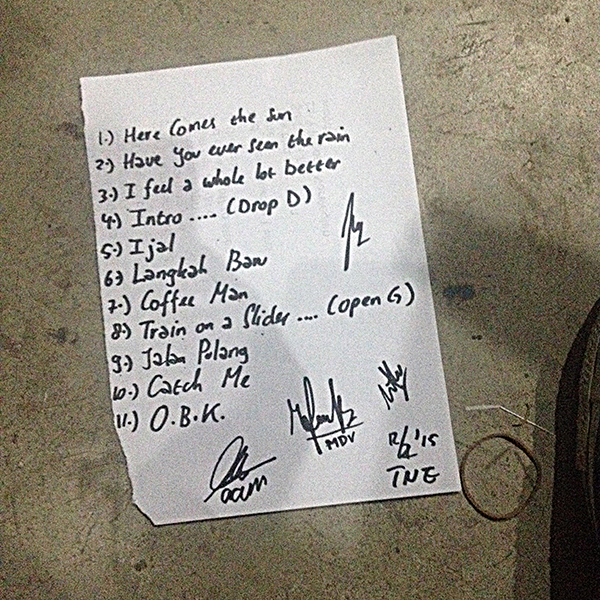 1.) Here Comes the Sun
2.) Have you ever seen the rain
3.) I feel a whole lot better
4.) Intro .... (Drop D)
5.) Ijal
6.) Langkah Baru
7.) Coffee Man
8.) Train on a Slider .... (open G)
9.) Jalan Pulang
10.) Catch Me
11.) O.B.K.
MDV
12/2 '15
TNE